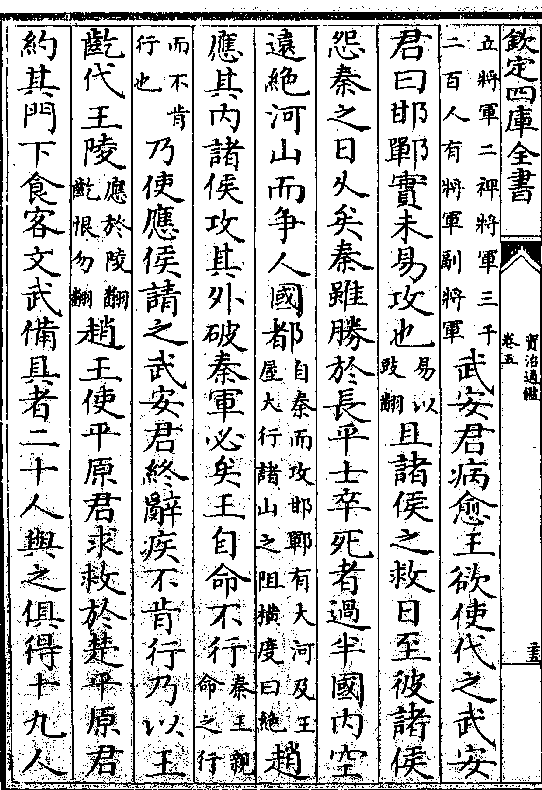 欽定四庫全書
資治通鑑
卷五
立將軍二裨將軍三千二百人有將軍副將軍武安君病愈王欲使代之武安
君曰邯鄲實未易攻也易以豉翻且諸侯之救日至彼諸侯
怨秦之日久矣秦雖勝於長平士卒死者過半國内空
遠絶河山而争人國都自秦而攻邯鄲有大河及王屋大行諸山之阻横度曰絶趙
應其内諸侯攻其外破秦軍必矣王自命不行秦王親命之行
而不肯行也乃使應侯請之武安君終辭疾不肯行乃以王
齕代王陵應於陵翻齕恨勿翻趙王使平原君求救於楚平原君
約其門下食客文武備具者二十人與之俱得十九人